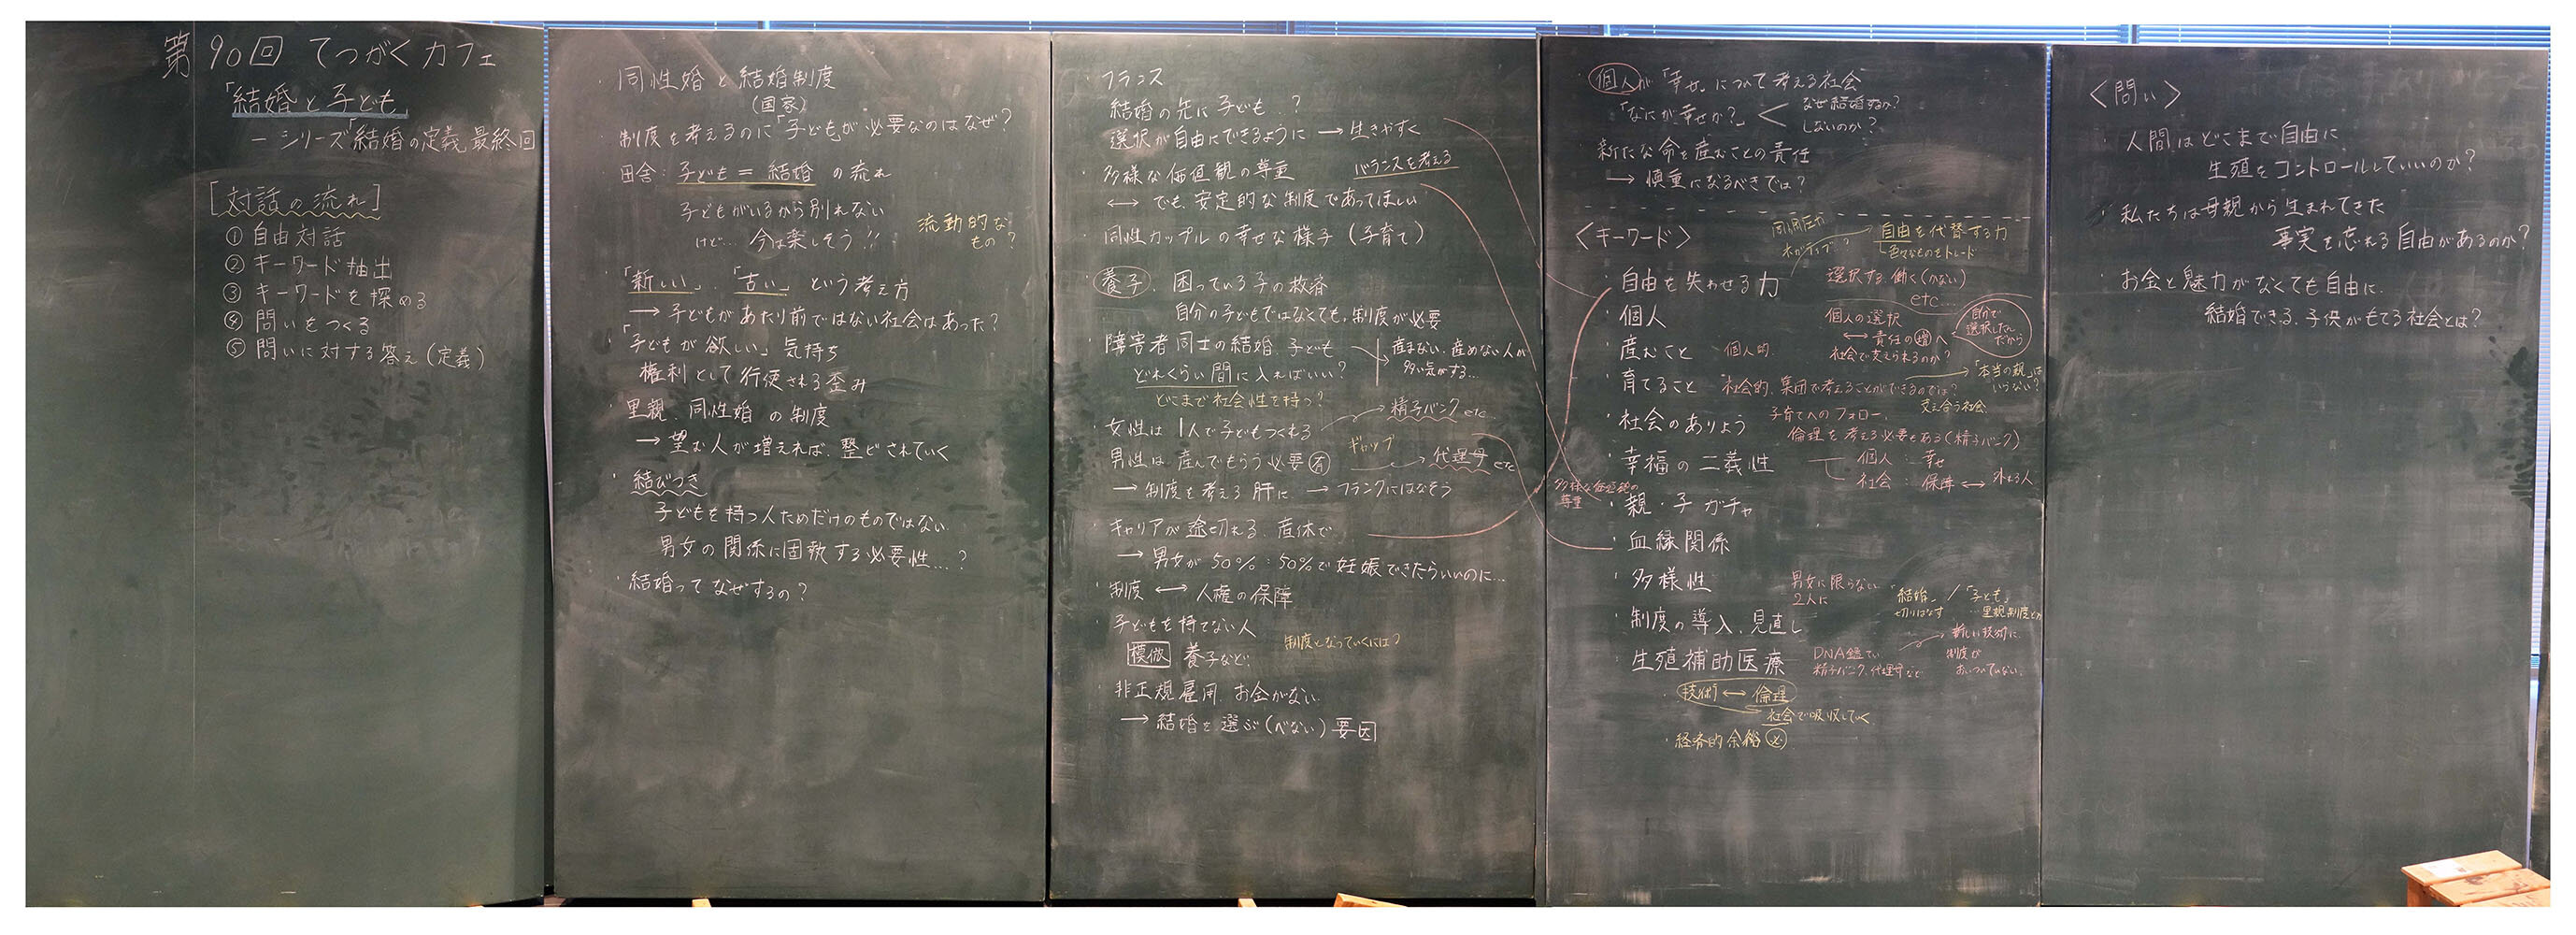 第90回 てつがくカフェ
「結婚と子ども」
ーシリーズ「結婚の定義」最終回
［対話の流れ］
① 自由対話
② キーワード抽出
③ キーワードを深める
④ 問いをつくる
⑤ 問いに対する答え（定義）
・同性婚と結婚制度
（国家）
制度を考えるのに「子ども」が必要なのはなぜ？
・田舎：子ども＝結婚 の流れ
子どもがいるから別れない
けど… 今は楽しそう!!
流動的な
もの？
・「新しい」、「古い」という考え方
→ 子どもがあたり前ではない社会はあった？
・「子どもが欲しい」気持ち
権利として行使される歪み
・里親、同性婚の制度
→ 望む人が増えれば、整ビされていく
・結びつき
子どもを持つ人ためだけのものではない
男女の関係に固執する必要性…？
・結婚ってなぜするの？
・フランス
結婚の先に子ども..？
選択が自由にできるように → 生きやすく
・多様な価値観の尊重
バランスを考える
←→ でも、安定的な制度であってほしい
・同性カップルの幸せな様子（子育て）
・養子、困っている子の救済
自分の子どもではなくても、制度が必要
・障害者同士の結婚、子ども
→ 産まない、産めない人が
多い気がする…
どれくらい間に入ればいい？
どこまで社会性を持つ？
・女性は1人で子どもつくれる
→ 精子バンク etc…
ギャップ
男性は産んでもらう必要㊒
→ 代理母 etc
→ 制度を考える肝に → フランクにはなそう
・キャリアが途切れる、産休で
→ 男女が50％：50％で妊娠できたらいいのに…
・制度 ←→ 人権の保障
・子どもを持てない人
模倣 養子など
制度となっていくには？
・非正規雇用、お金がない
→ 結婚を選ぶ（べない）要因
・個人が「幸せ」について考える社会
「なにが幸せか？」＜
なぜ結婚するか？
しないのか？
・新たな命を産むことの責任
→ 慎重になるべきでは？
＜キーワード＞
同調圧力
ネガティブ？
自由を代替する力
色々なものをトレード
・自由を失わせる力
選択する、働く（かない）
etc…
・個人
個人の選択
←→ 責任の増へ
社会で支えられるのか？
自分で
選択したん
だから
・産むこと
個人的
・育てること
社会的、集団で考えることができるのでは？
→「本当の親」は
いらない？
・社会のありよう
子育てへのフォロー、
支え合う社会
倫理を考える必要もある（精子バンク）
・幸福の二義性
個人：幸せ
社会：保障 ←→ 外れる人
多様な価値観の
尊重
・親・子ガチャ
・血縁関係
・多様性
男女に限らない
2人に
「結婚」／「子ども」
切りはなす
…里親制度とか
・制度の導入、見直し
・生殖補助医療
DNA鑑てい
精子バンク、代理母など
→ 新しい技術に
制度が
おいついていない
・技術 ←→ 倫理
社会で吸収していく
・経済的余裕㊙
＜問い＞
・人間はどこまで自由に
生殖をコントロールしていいのか？
・私たちは母親から生まれてきた
事実を忘れる自由があるのか？
・お金と魅力がなくても自由に
結婚できる、子供がもてる社会とは？